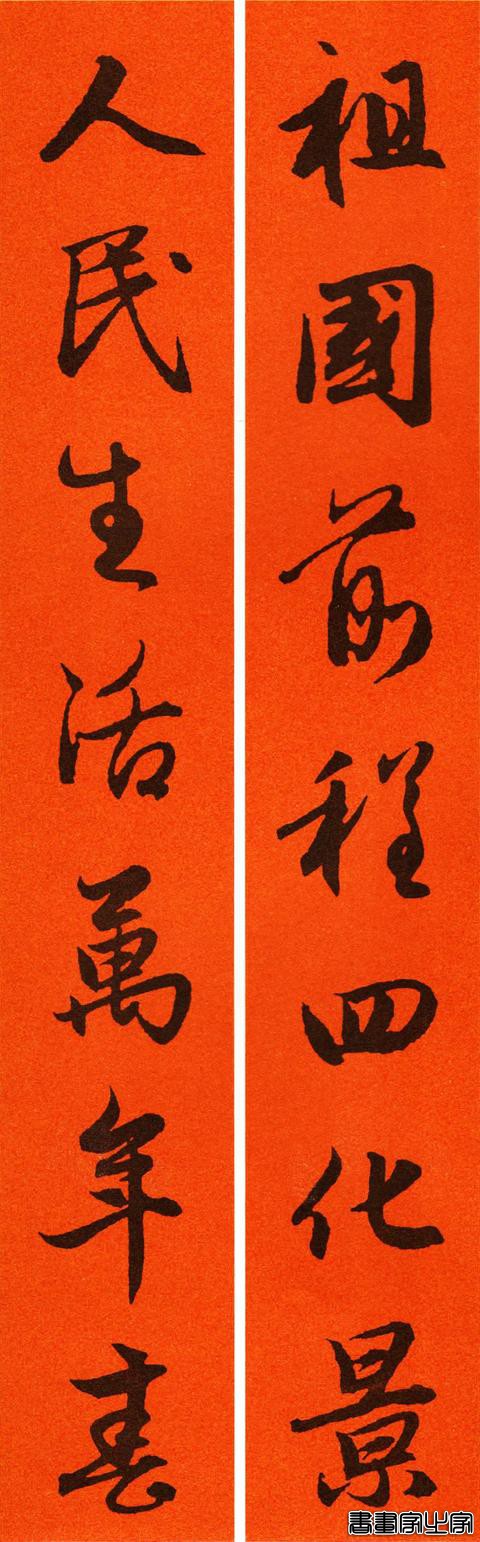 祖國前程四化景
人民生活萬年春
書畫字生字